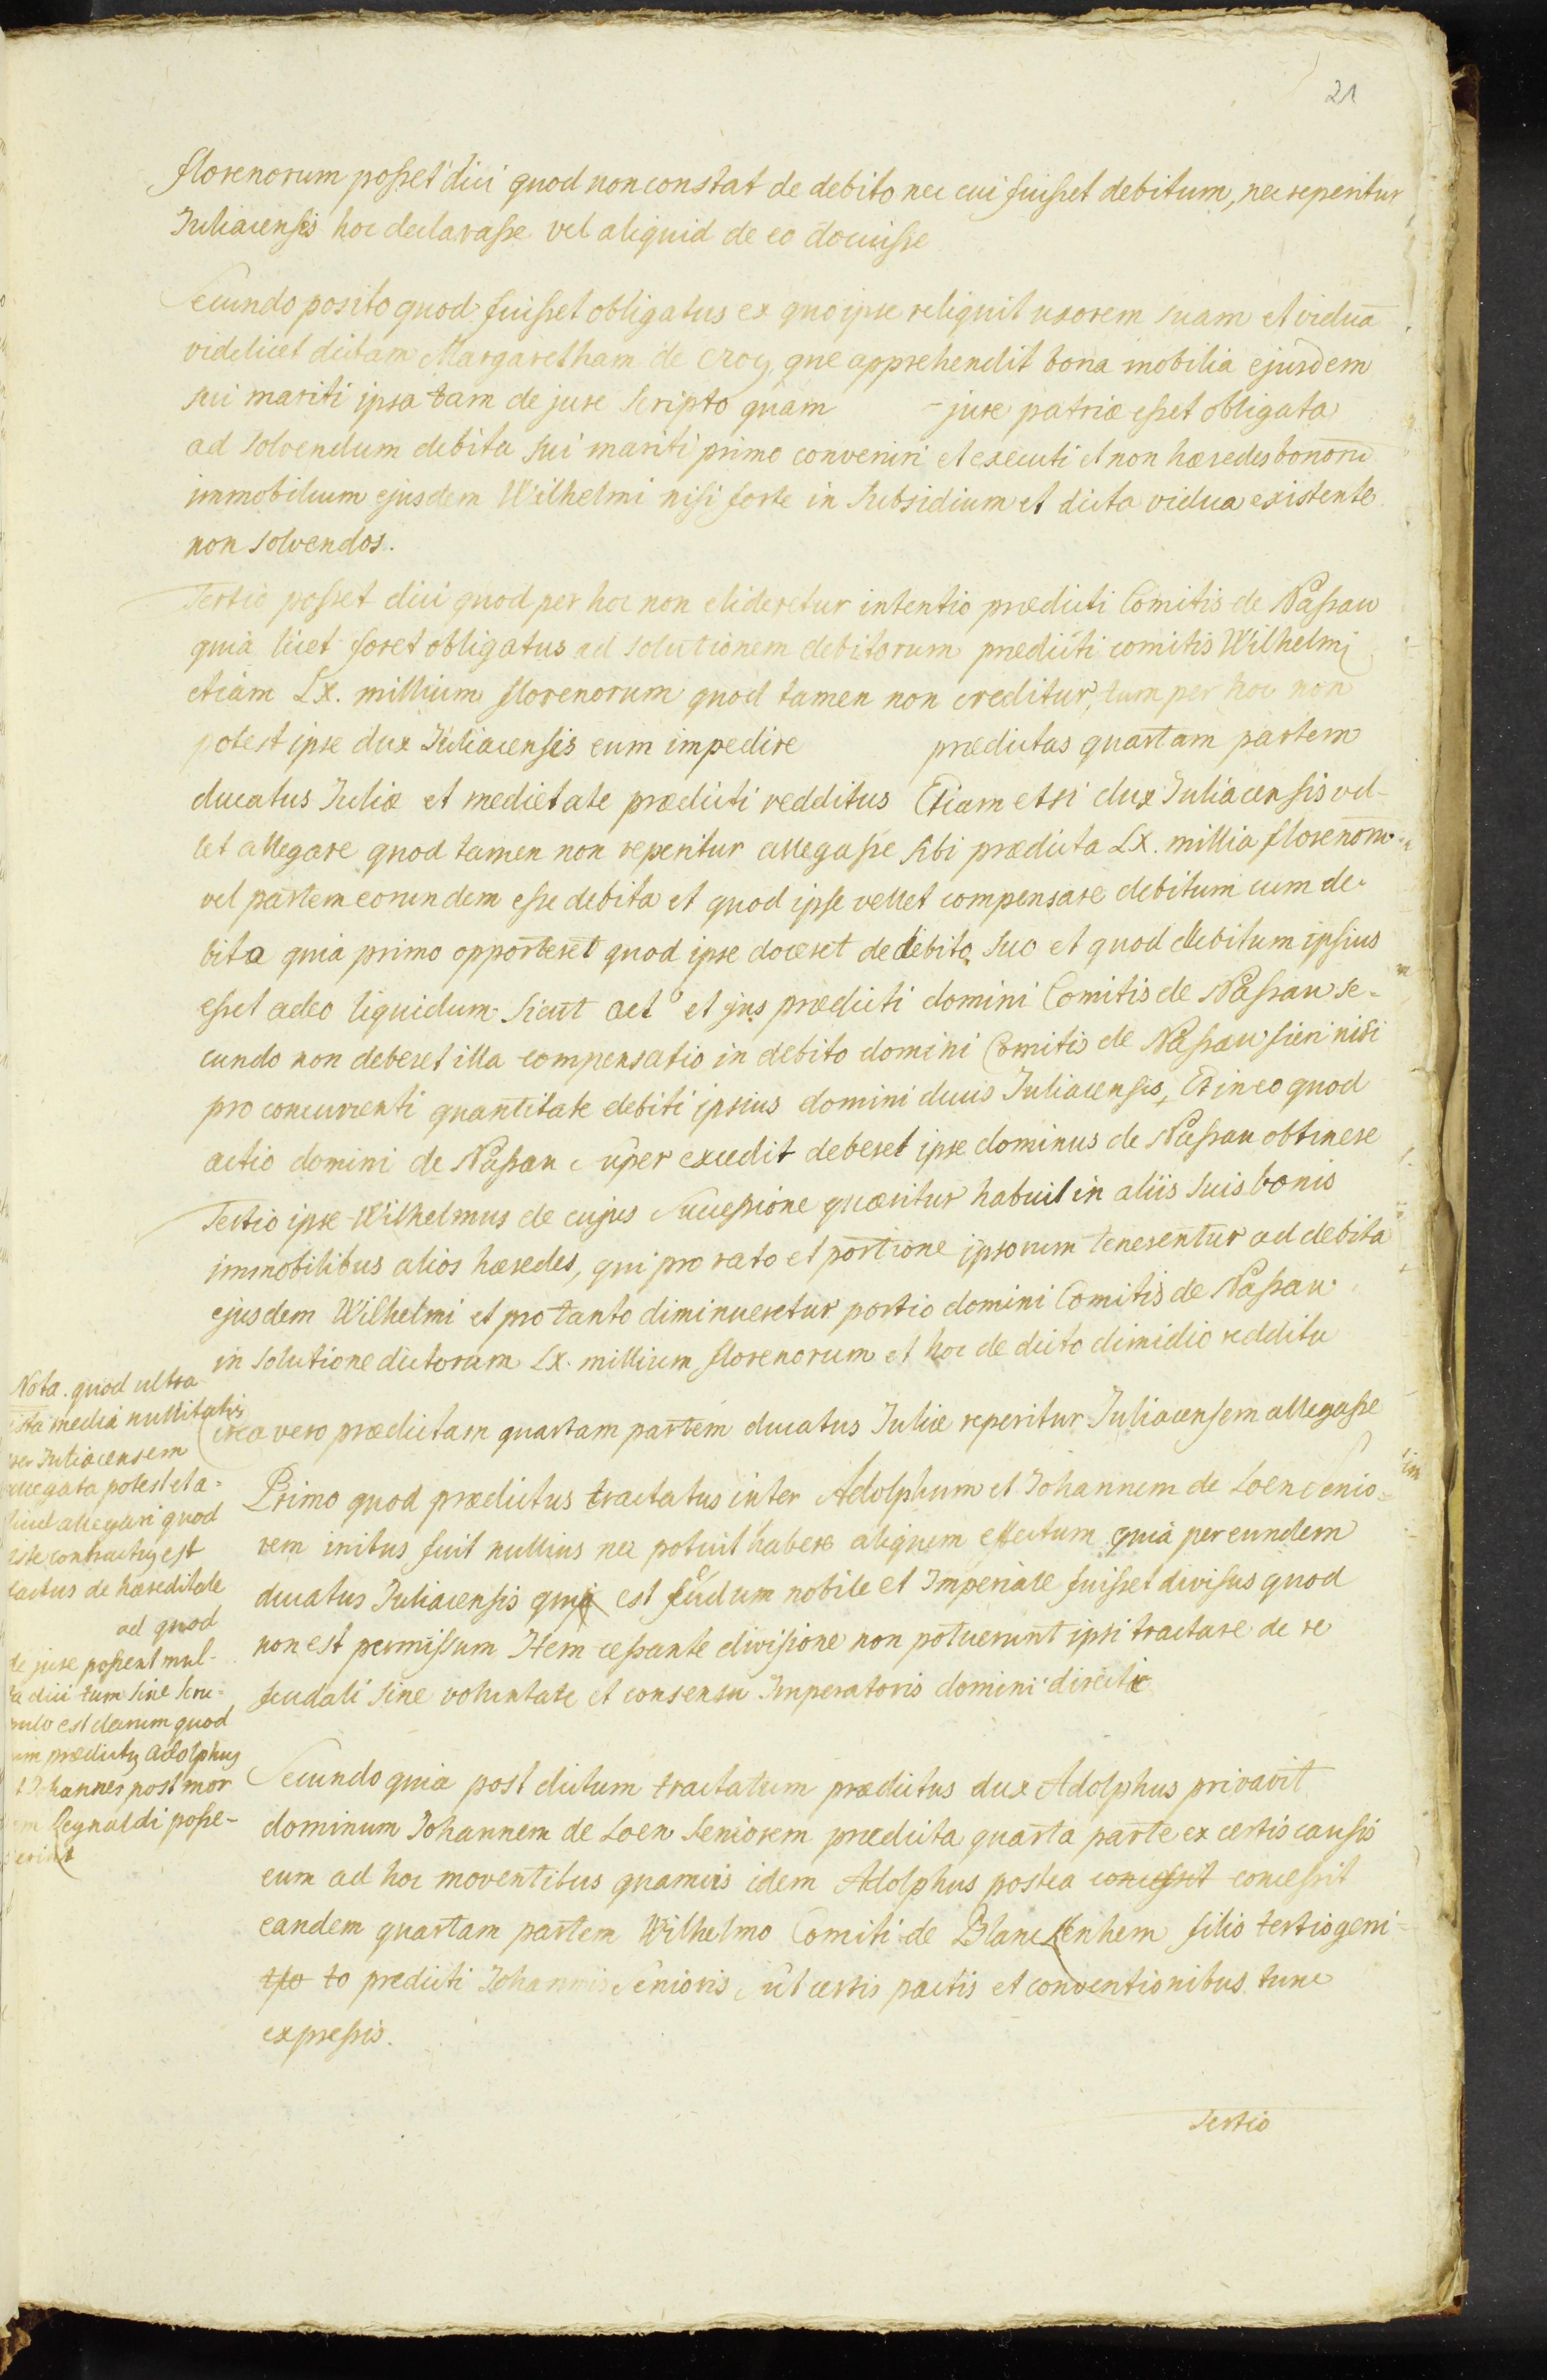 21
florenorum posset dici quod non constat de debito nec cui fuisset debitum, nec reperitur
Juliacensis hoc declarasse vel aliquid de eo docuisse
Secundo posito quod fuisset obligatus ex quo ipse reliquit uxorem suam et viduā
videlicet dictam Margaretham de Croy, que apprehendit bona mobilia ejusdem
sui mariti ipsa tam de jure scripto quam - jure patriæ esset obligata
ad solvendum debita sui mariti primo conveniri et executi et non hæredes bonorū
immobilium ejusdem Wilhelmi nisi forte in subsidium et dicta vidua existente
non solvendos.
Tertio posset dici quod per hoc non elideretur intentio prædicti Comitis de Nassau
quia licet foret obligatus ad solutionem debitorum prædicti comitis Wilhelmi
etiam Lx. millium florenorum quod tamen non creditur, tum per hoc non
potest ipse dux Juliacensis eum impedire prædictas quartam partem
ducatus Juliæ et medietate prædicti redditus Etiam etsi dux Juliacensis vel-
let allegare quod tamen non reperitur allegasse sibi prædicta Lx. millia florenorū
vel partem eorundem esse debita et quod ipse vellet compensare debitum cum de-
bita quia primo opporteret quod ipse doceret de debito suo et quod debitum ipsius
esset adeo liquidum sicut act° et jus prædicti domini Comitis de Nassau se-
cundo non deberet illa compensatio in debito domini Comitis de Nassau fieri nisi
pro concurrenti quantitate debiti ipsius domini ducis Juliacensis, Et in eo quod
actio domini de Nassau super excedit deberet ipse dominus de Nassau obtinere
Tertio ipse Wilhelmus de cujus successione quæritur habuit in aliis suis bonis
immobilibus alios hæredes, qui pro rato et portione ipsorum tenerentur ad debita
ejusdem Wilhelmi et pro tanto diminueretur portio domini Comitis de Nassau
in solutione dictorum Lx. millium florenorum et hoc de dicto dimidio redditu
Circa vero prædictam quartam partem ducatus Juliæ reperitur Juliacensem allegasse
Primo quod prædictus tractatus inter Adolphum et Johannem de Loen Senio-
rem initus fuit nullius nec potuit habere aliquem effectum quia per eundem
ducatus Juliacensis qui est feudum nobile et Imperiale fuisset divisus quod
non est permissum Item cessante divisione non potuerunt ipsi tractare de re
feudali sine voluntate et consensu Imperatoris domini directi
Secundo quia post dictum tractatum prædictus dux Adolphus privavit
dominum Johannem de Loen Seniorem prædicta quarta parte ex certis causis
eum ad hoc moventibus quamvis idem Adolphus postea concessit concessit
eandem quartam partem Wilhelmo Comiti de Blanckenhem filio tertiogeni-
to prædicti Johannis Senioris sub certis pactis et conventionibus tunc
expressis.
Tertio
Nota. quod ultra
ista media nullitatis
per Juliacensem
allegata potest eta-
quod
iste contractus est
factus de hæreditate
ad quod
de jure possent mul-
ta dici tum sine scru-
pulo est clarum quod
cum prædictus Adolphus
et Johannes post mor
tem Reynaldi posse-